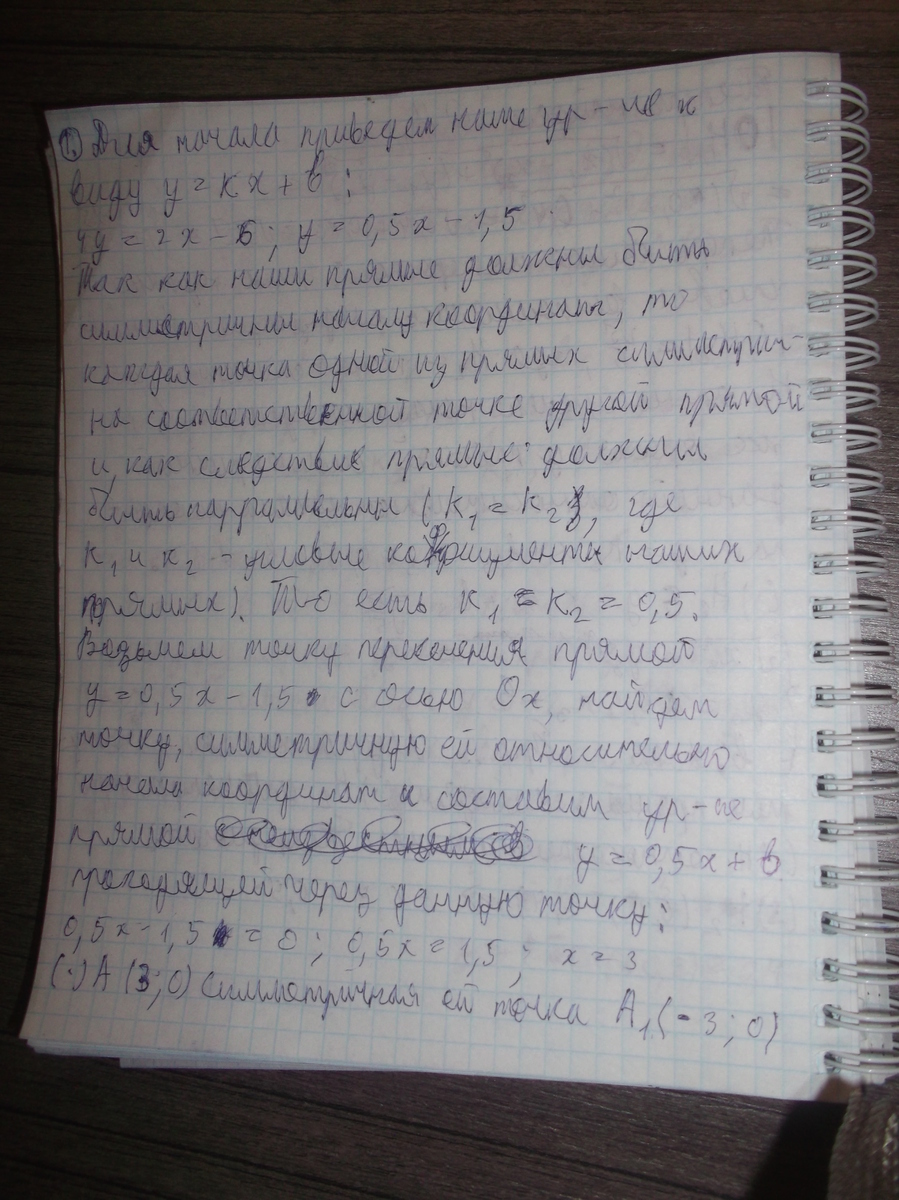 1. Для начала приведем наше ур-ие к
виду y = kx + b :
4y = 2x - 6 ; y = 0,5x - 1,5
Так как наши прямые должны быть
симметричны началу координат, то
каждая точка одной из прямых симметрич-
на соответственной точке другой прямой
и, как следствие прямые должны
быть паррамельны ( K₁ = K₂ ), где
K₁ и K₂ - угловые коэффициенты наших
прямых). То есть K₁ = K₂ = 0,5.
Возьмем точку пересечения прямой
y = 0,5x - 1,5 с осью Ox, найдем
точку, симметричную ей относительно
начала координат и составим ур-ие
прямой y = 0,5x + b
проходящей через данную точку :
0,5x - 1,5 = 0 ; 0,5x = 1,5 ; x = 3
(·) A (3 ; 0) симметричная ей точка A₁ (-3 ; 0)